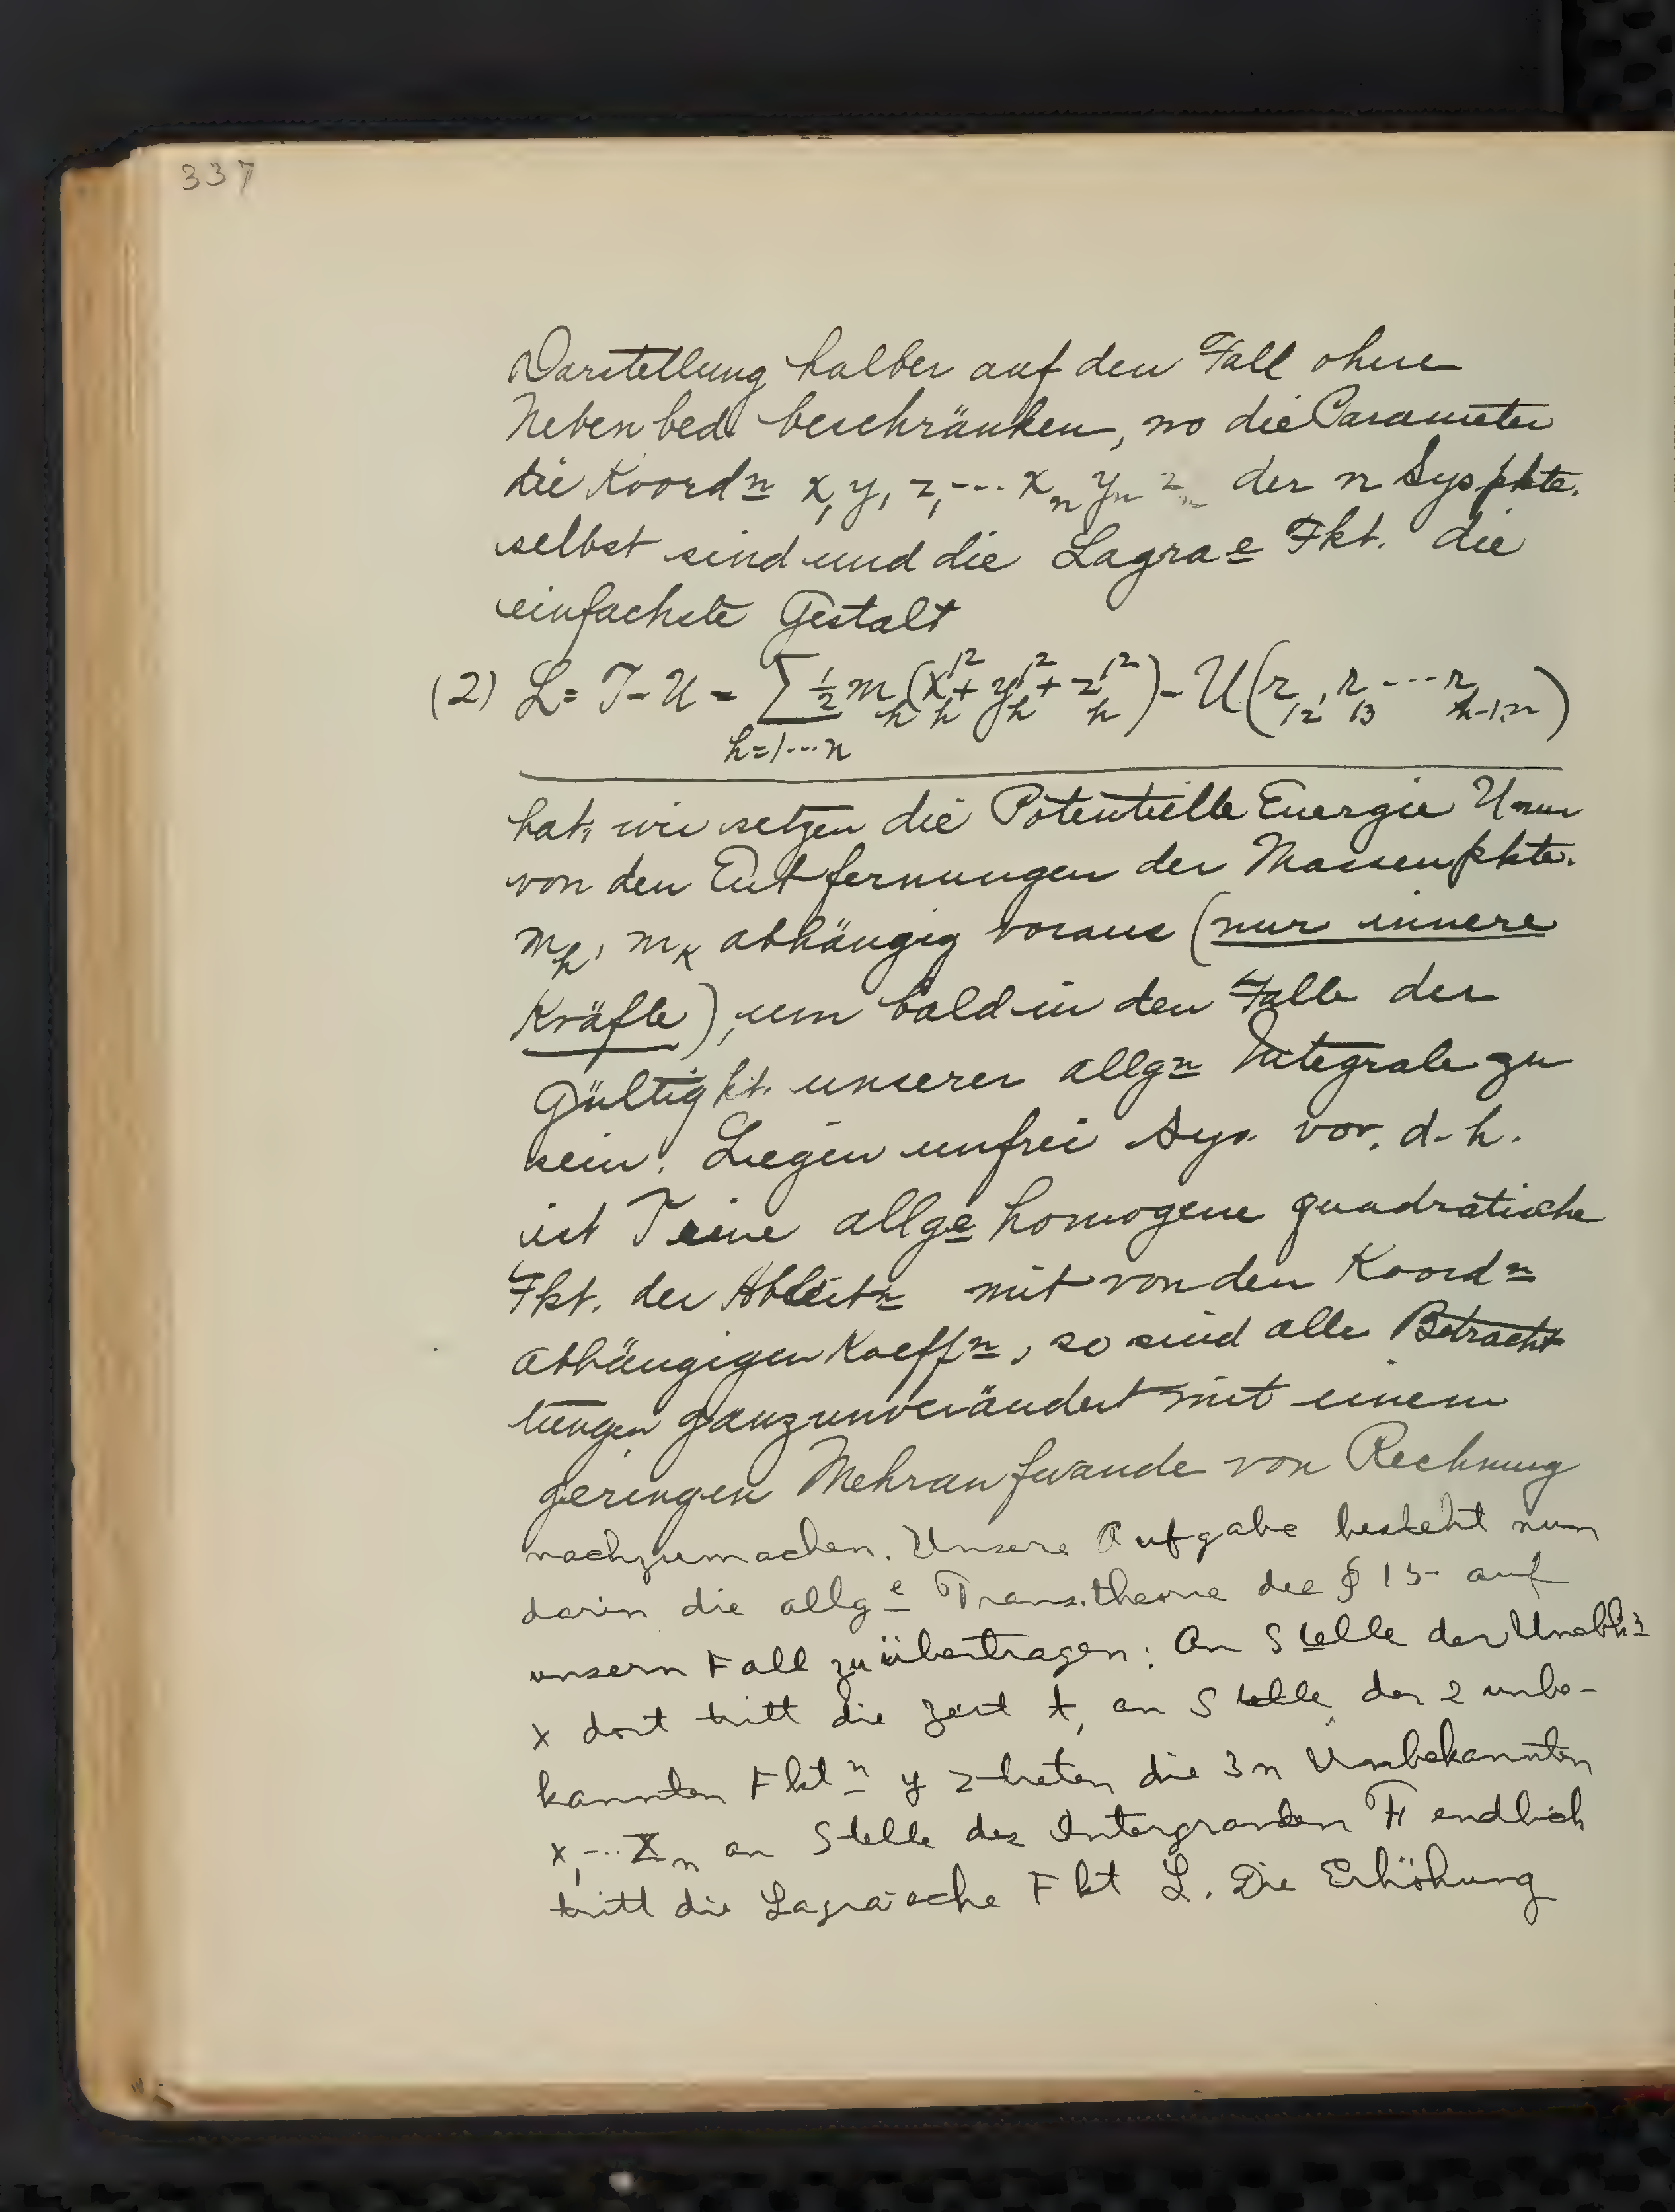 337
Darstellung halber auf den Fall ohne
Nebenbed. beschränken, wo die Parameter
die Koordn x₁ y₁ z₁ --- xₙ yₙ zₙ der n Syspkte.
selbst sind und die Lagra-e Fkt. die
einfachste Gestalt
(2) L = T - U = ∑ ½ mₕ (xₕ'² + yₕ'² + zₕ'²) - U(r₁₂, r₁₃ --- rₙ₋₁,ₙ)
h=1...n
hat; wir setzen die Potentielle Energie U nur
von den Entfernungen der Massenpkte.
mₕ, mₖ abhängig voraus (nur innere
Kräfte), um bald in den Falle der
Gültigkt. unserer allgn Integrale zu
sein. Liegen unfrei Sys. vor, d.h.
ist T eine allge homogene quadratische
Fkt. der Ableitn mit von den Koordn
abhängigen Koeffn, so sind alle Betracht
tungen ganz unverändert mit einem
geringen Mehraufwande von Rechnung
nachzumachen. Unsere Aufgabe besteht nun
darin die allge Trans.theorie des § 15 auf
unsern Fall zu übertragen: An Stelle der
x dort tritt die Zeit t, an Stelle der 2 unbe-
kannten Fktn y z treten die 3n Unbekannten
x₁ --- zₙ an Stelle des Intergranden F endlich
tritt die Lagra-sche Fkt L. Die Erhöhung